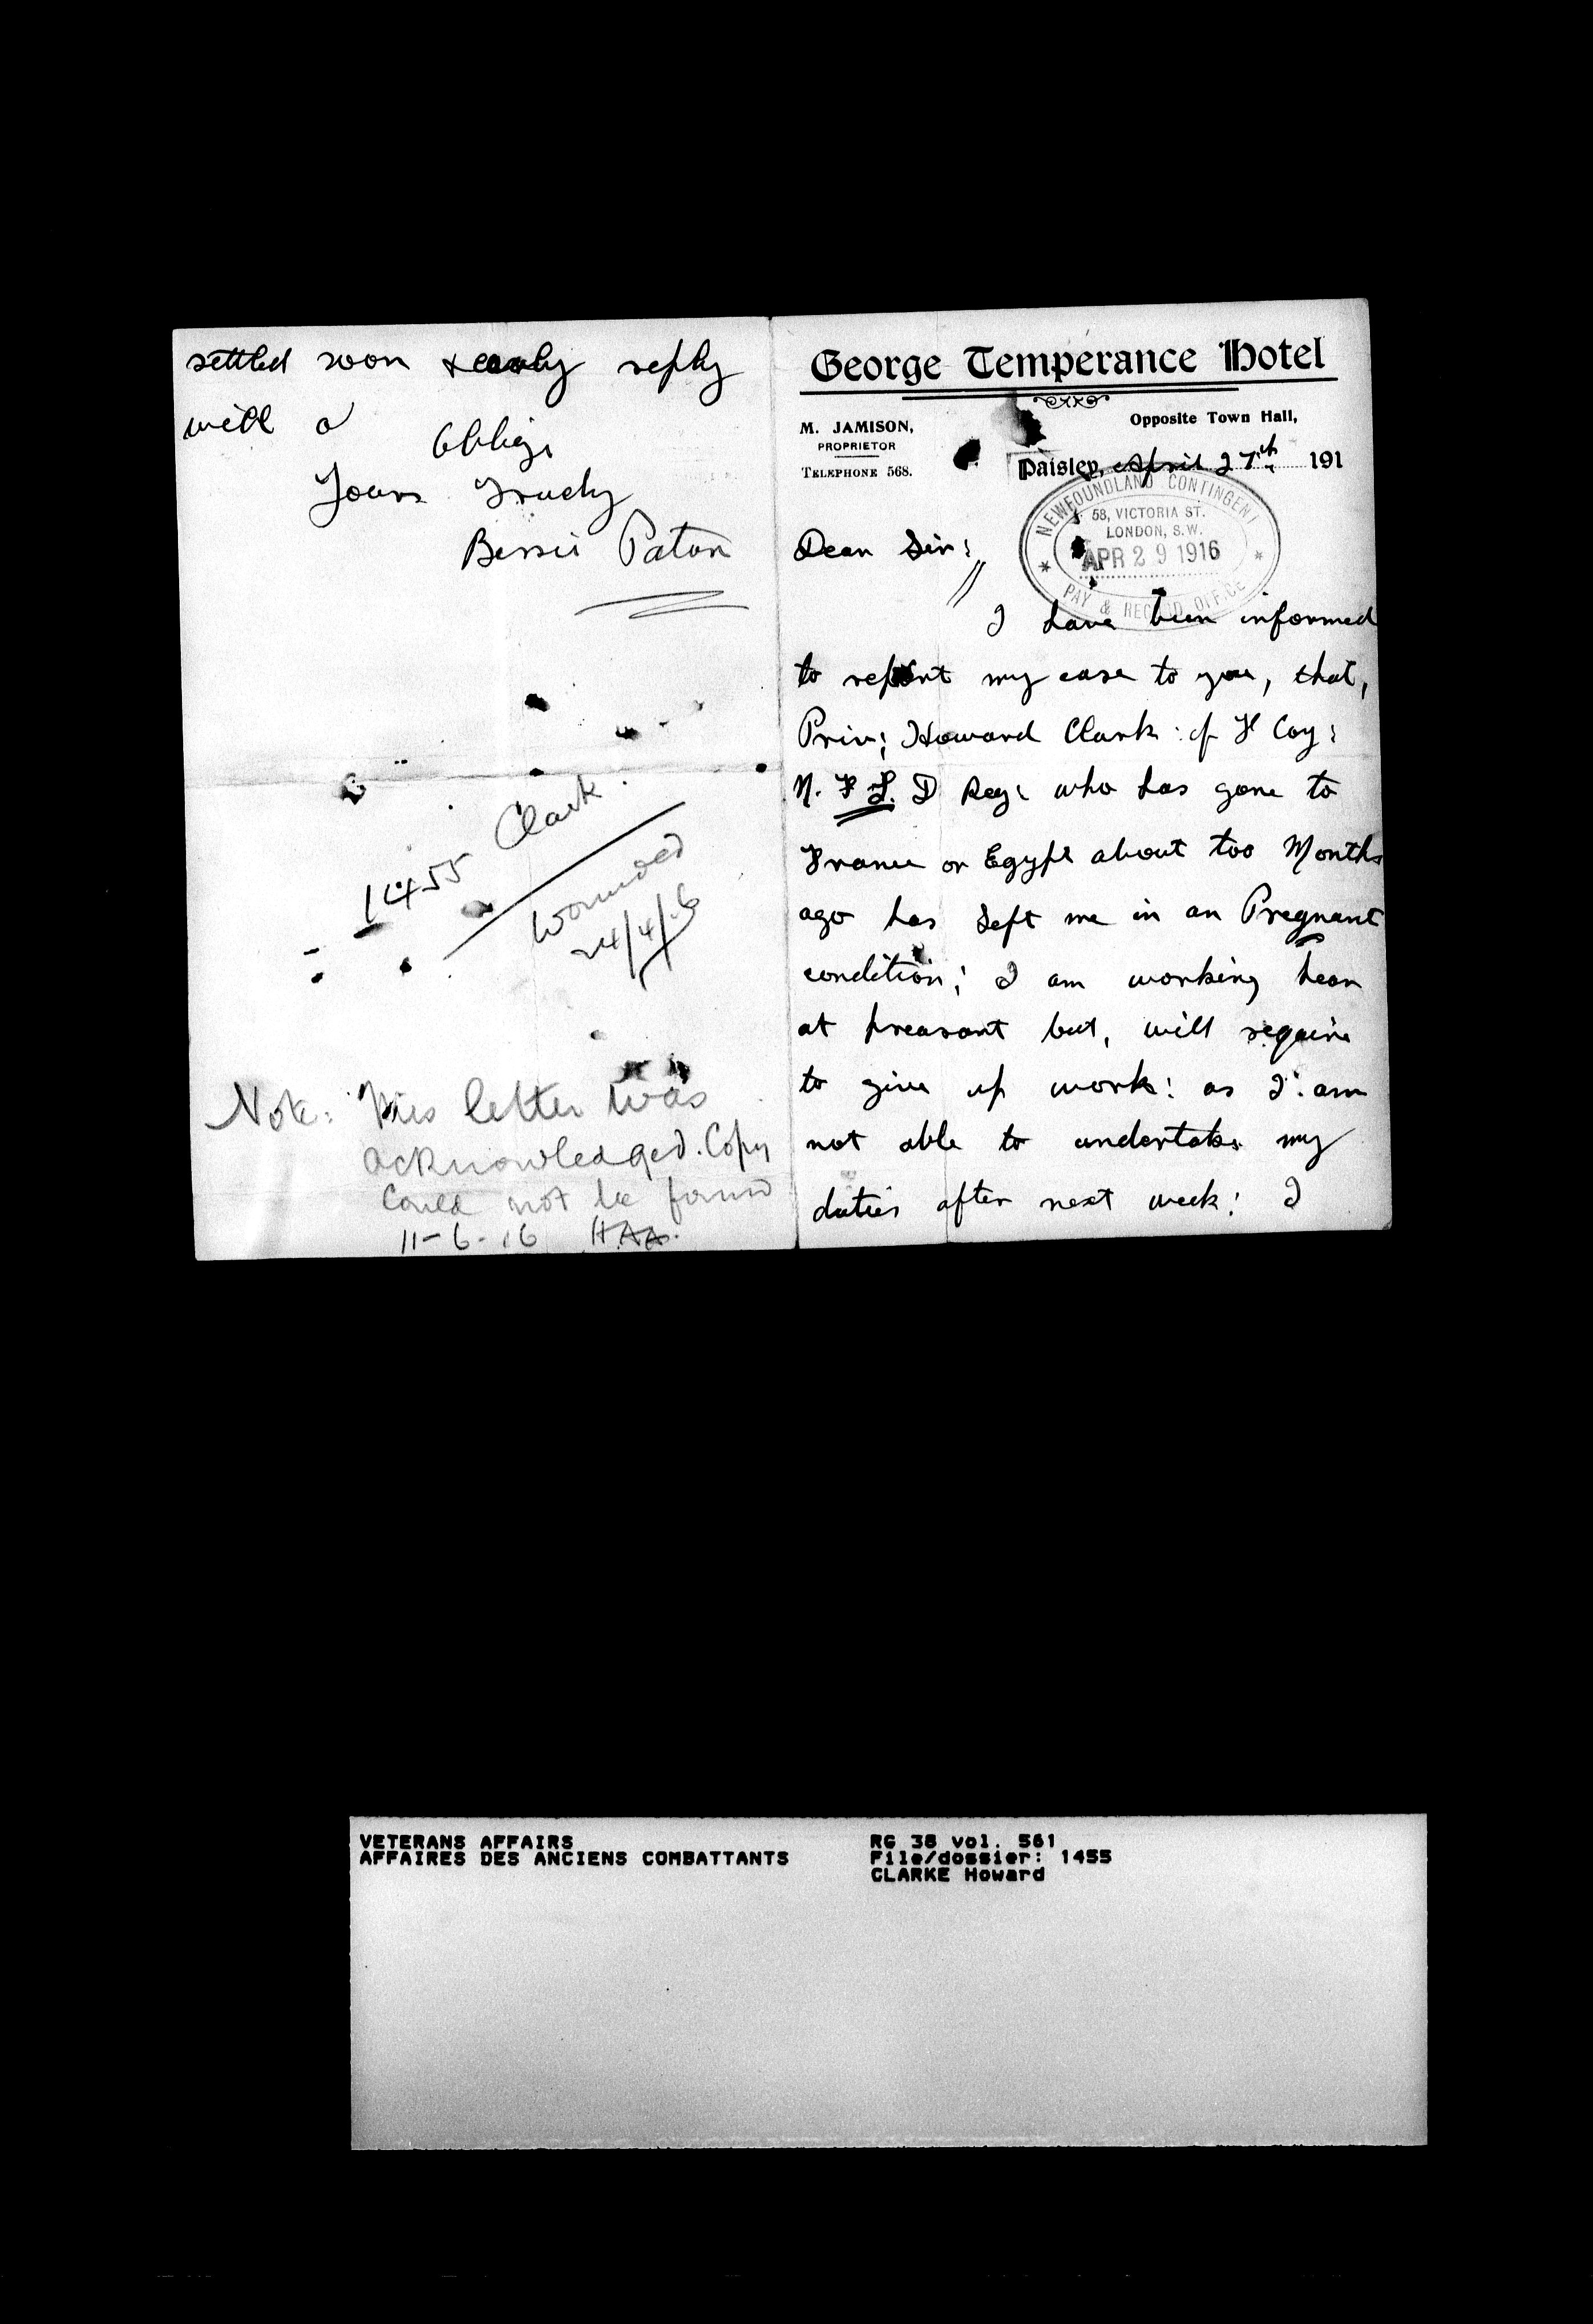 George Temperance Hotel
M. JAMISON,
PROPRIETOR
TELEPHONE 568.
Opposite Town Hall,
Paisley, April 27th 191
NEWFOUNDLAND CONTINGENT
58, VICTORIA ST.
LONDON, S.W.
APR 29 1916
PAY & RECORD OFFICE
Dear Sir:
I have been informed
to report my case to you, that,
Priv: Howard Clark of F Coy:
N. F L. D Reg: who has gone to
France or Egypt about too Months
ago has left me in an Pregnant
condition; I am working hear
at preasant but, will require
to give up work: as I am
not able to undertake my
duties after next week: I
settled soon & early reply
will a
Oblige
Yours Truely
Bessie Paton
1455 Clark.
Wounded
24/4/16
Note: This letter was
acknowledged. Copy
could not be found
11-6-16 HAA.
VETERANS AFFAIRS
AFFAIRES DES ANCIENS COMBATTANTS
RG 38 vol. 561
File/dossier: 1455
CLARKE Howard